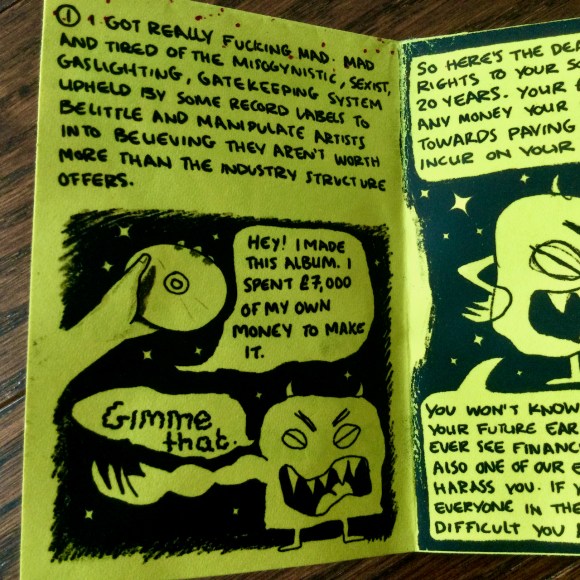 1. I GOT REALLY FUCKING MAD. MAD
AND TIRED OF THE MISOGYNISTIC, SEXIST,
GASLIGHTING, GATEKEEPING SYSTEM
UPHELD BY SOME RECORD LABELS TO
BELITTLE AND MANIPULATE ARTISTS
INTO BELIEVING THEY AREN'T WORTH
MORE THAN THE INDUSTRY STRUCTURE
OFFERS.
HEY! I MADE
THIS ALBUM. I
SPENT £7,000
OF MY OWN
MONEY TO MAKE
IT.
Gimme
that.
SO HERE'S THE
RIGHTS TO YOUR
20 YEARS. YOUR
ANY MONEY YOUR
TOWARDS PAYING
INCUR ON YOUR
YOU WON'T KNOW
YOUR FUTURE
EVER SEE
ALSO ONE OF OUR
HARASS YOU. IF
EVERYONE IN THE
DIFFICULT YOU